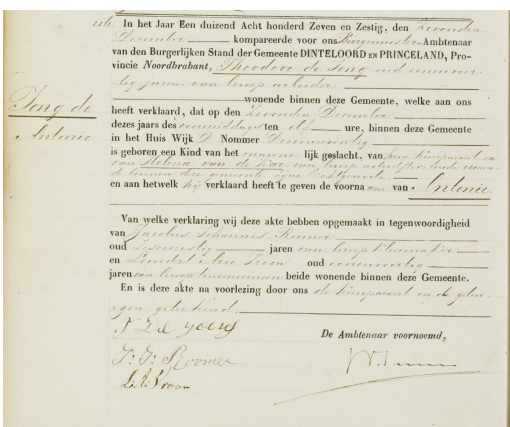 116 In het Jaar Een duizend Acht honderd Zeven en Zestig, den Zevenden
December kompareerde voor ons Burgemeester Ambtenaar
van den Burgerlijken Stand der Gemeente DINTELOORD en PRINCELAND, Pro-
vincie Noordbrabant, Theodoor de Jong oud eenenveer-
tig jaren van beroep arbeider
wonende binnen deze Gemeente, welke aan ons
Jong de
heeft verklaard, dat op den Zevenden December
Antonie
dezes jaars des voormiddags ten elf ure, binnen deze Gemeente
in het Huis Wijk D Nommer
is geboren een Kind van het manne lijk geslacht, van hem komparant en
van Helena van de van beroep arbeidster
binnen deze gemeente zijne Echtgenoote
en aan hetwelk hij verklaard heeft te geven de voorna am van Antonie.
Van welke verklaring wij deze akte hebben opgemaakt in tegenwoordigheid
van Jacobus Johannis Roomer
oud jaren van beroep
en Lendert Troon oud
jaren van beroep beide wonende binnen deze Gemeente.
En is deze akte na voorlezing door ons de komparant en de getui-
gen geteekend.
T De Jong
De Ambtenaar voornoemd,
J: J: Roomer
L. A: Troon